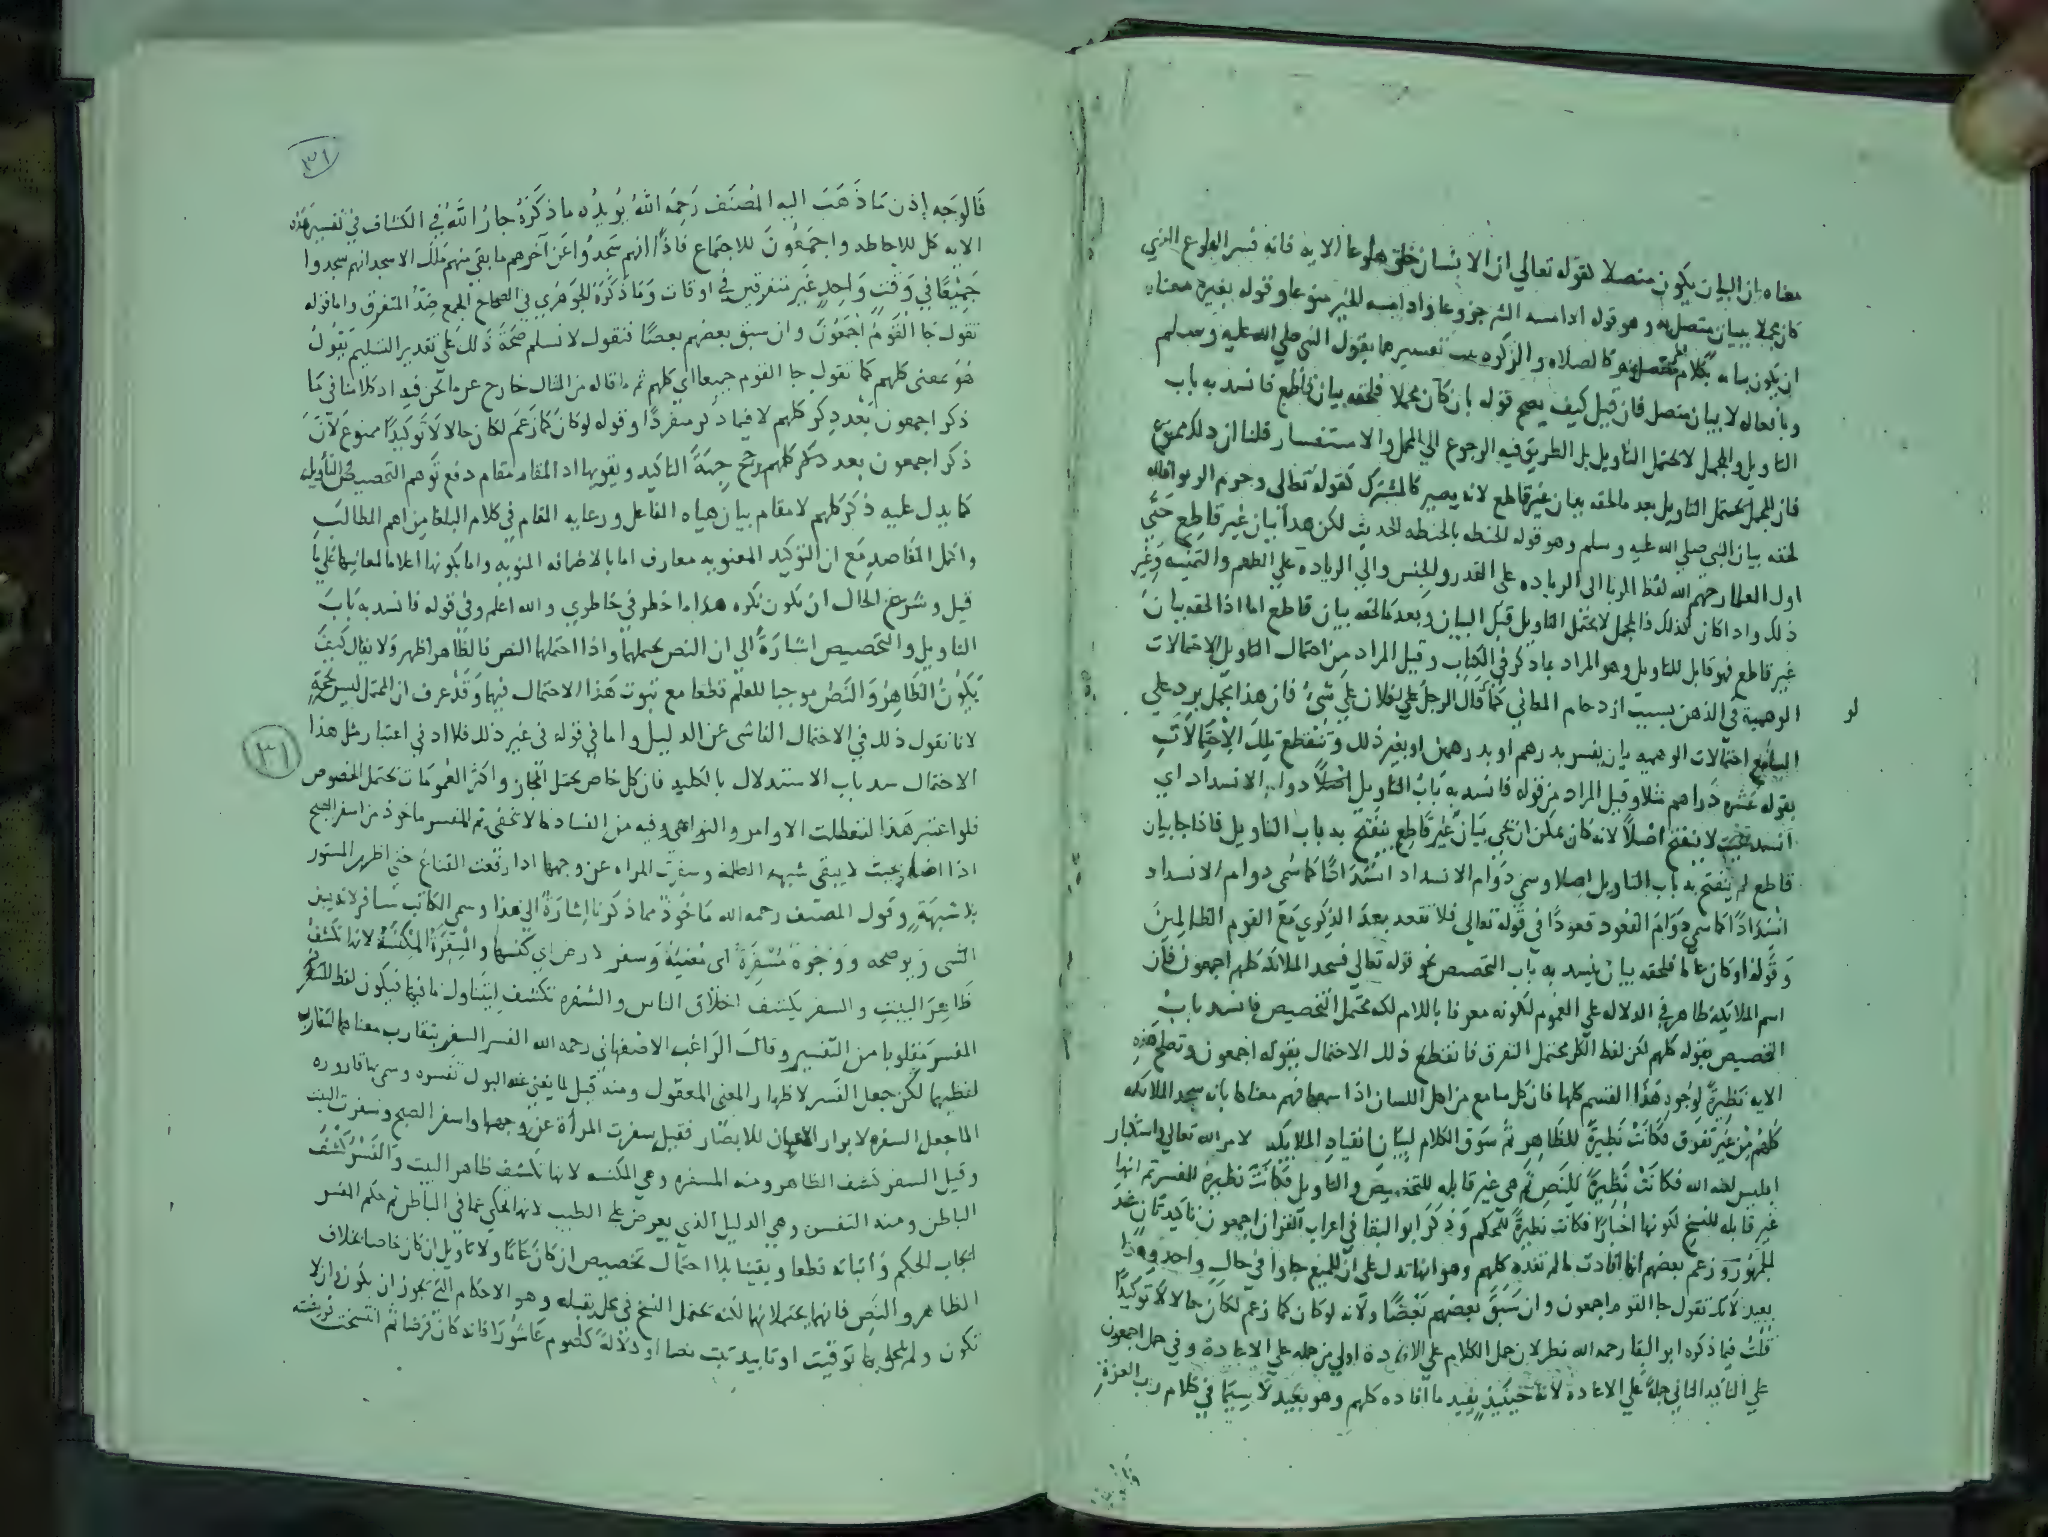 معناه ان البيان يكون متصلا لقوله تعالي ان الانسان خلق هلوعا الايه فانه فسر الهلوع الذي
كان مجملا ببيان متصل به وهو قوله اذا مسه الشر جزوعا واذا مسه الخير منوعا وقوله بغيره معناه
ان يكون بيانه بكلام منفصل كالصلاه والزكوه تفسيرهما بقول النبي صلي الله عليه وسلم
وبافعاله لا ببيان متصل فان قيل كيف يصح قوله بان كان مجملا فلحقه بيان قاطع فانسد به باب
التاويل والمجمل لا يحتمل التاويل بل الطريق فيه الرجوع الي المجمل والاستفسار قلنا ان ذلك ممنوع
فان المجمل يحتمل التاويل بعد ما لحقه بيان غير قاطع لانه يصير كالمشترك كقوله تعالي وحرم الربوا فانه
لحقه بيان النبي صلي الله عليه وسلم وهو قوله الحنطه بالحنطه الحديث لكن هذا بيان غير قاطع حتي
اول العلما رحمهم الله لفظ الربا الي الزياده علي القدر والجنس والي الزياده علي الطعم والثمنيه وغير
ذلك واذا كان كذلك فالمجمل لا يحتمل التاويل قبل البيان وبعد ما لحقه بيان قاطع اما اذا لحقه بيان
غير قاطع فهو قابل للتاويل وهو المراد بما ذكر في الكتاب وقيل المراد من احتمال التاويل الاحتمالات
الوهمية في الذهن بسبب ازدحام المعاني كما قال الرجل علي لفلان علي شئ فان هذا مجمل يرد علي
لو
السامع احتمالات الوهميه بان يفسر بدرهم او بدرهمين او بغير ذلك وتنقطع تلك الاحتمالات
بقوله عشره دراهم مثلا وقيل المراد من قوله فانسد به باب التاويل اصلا دوام الانسداد اي
انسد بحيث لا ينفتح اصلا لانه كان يمكن ان يجي بيان غير قاطع ينفتح به باب التاويل فاذا جا بيان
قاطع لم ينفتح به باب التاويل اصلا وسمي دوام الانسداد انسدادا كما سمي دوام الانسداد
انسدادا كما سمي دوام القعود قعودا في قوله تعالي فلا تقعد بعد الذكري مع القوم الظالمين
وقوله او كان عاما فلحقه بيان ينسد به باب التخصيص نحو قوله تعالي فسجد الملائكه كلهم اجمعون فان
اسم الملايكة ظاهر في الدلاله علي العموم لكونه معرفا باللام لكنه يحتمل التخصيص فانسد باب
التخصيص بقوله كلهم لكن لفظ الكل يحتمل التفرق فانقطع ذلك الاحتمال بقوله اجمعون وتصلح هذه
الايه نظيرة لوجود هذا القسم كلها فان كل سامع من اهل اللسان اذا سمعها فهم معناها بانه سجد الملائكه
كلهم من غير تفرق فكانت نظيرة للظاهر ثم سوق الكلام لبيان انقياد الملايكه لامر الله تعالي واستكبار
ابليس لعنه الله فكانت نظيرة للنص ثم هي غير قابله للتخصيص والتاويل فكانت نظيرة للمفسر ثم انها
غير قابله للنسخ لكونها اخبارا فكانت نظيرة للمحكم وذكر ابو البقا في اعراب القران اجمعون تاكيد ثان عند
الجمهور وزعم بعضهم انها افادت ما لم تفده كلهم وهو انها تدل علي ان الجميع جاوا في حال واحد وهذا
بعيد لانك تقول جا القوم اجمعون وان سبق بعضهم بعضا ولانه لو كان كما زعم لكان حالا لا توكيدا
قلت فيما ذكره ابو البقا رحمه الله نظر لان حمل الكلام علي الافادة اولي من حمله علي الاعادة وفي حمل اجمعون
علي التاكيد الثاني حمله علي الاعاده لانه حينيذ يفيد ما افاده كلهم وهو بعيد لا سيما في كلام رب العزة
٣١
فالوجه اذن ما ذهب اليه المصنف رحمه الله يويده ما ذكره جار الله في الكشاف في تفسير هذه
الايه كل للاحاطه واجمعون للاجتماع فاذا انهم سجدوا عن آخرهم ما بقي منهم ملك الا سجد انهم سجدوا
جميعا في وقت واحد غير متفرقين في اوقات وما ذكره الجوهري في الصحاح الجمع ضد المتفرق واما قوله
تقول جا القوم اجمعون وان سبق بعضهم بعضا فنقول لا نسلم صحة ذلك علي تقدير التسليم يقول
هو بمعني كلهم كما تقول جا القوم جميعا اي كلهم ثم ما قاله من المثال خارج عن ما نحن فيه اذ كلامنا في ما
ذكر اجمعون بعد ذكر كلهم لا فيما ذكر منفردا وقوله لو كان كما زعم لكان حالا لا توكيدا ممنوع لان
ذكر اجمعون بعد ذكر كلهم يرجح جهة التاكيد ويقويها اذ المقام مقام دفع توهم التخصيص والتاويل
كما يدل عليه ذكر كلهم لا مقام بيان هياه الفاعل ورعايه المقام في كلام البلغا من اهم المطالب
واكمل المقاصد مع ان التوكيد المعنويه معارف اما بالاضافه المنويه واما بكونها اعلاما لمعانيها علي ما
قيل وشرط الحال ان تكون نكره هذا ما خطر في خاطري والله اعلم وفي قوله فانسد به باب
التاويل والتخصيص اشارة الي ان النص يحتملهما واذا احتملهما النص فالظاهر اظهر ولا يقال كيف
يكون الظاهر والنص موجبا للعلم قطعا مع ثبوت هذا الاحتمال فيهما وقد عرف ان المحتمل ليس بحجة
٣١
لانا نقول ذلك في الاحتمال الناشي عن الدليل واما في قوله في غير ذلك فلا اذ في اعتبار مثل هذا
الاحتمال سد باب الاستدلال بالكليه فان كل خاص يحتمل المجاز واكثر العمومات يحتمل الخصوص
فلو اعتبر هذا لتعطلت الاوامر والنواهي وفيه من الفساد ما لا يخفي ثم المفسر ماخوذ من اسفر الصبح
اذا اضا بحيث لا يبقي شبهه الظلمه وسفرت المراه عن وجهها اذا رفعت القناع حتي اظهر المستور
بلا شبهة وقول المصنف رحمه الله ماخوذ مما ذكرنا اشارة الي هذا وسمي الكاتب سافرا لانه يبين
الشي ويوضحه ووجوه مسفرة اي مضيئة وسفر الارض اي كنسها والمسفرة المكنسة لانها تكشف
ظاهر البيت والسفر يكشف اخلاق الناس والسفره تكشف ليتناول ما فيها فيكون لفظ المفسر
المفسر مقلوبا من التفسير وقال الراغب الاصفهاني رحمه الله الفسر السفر يتقارب معناهما لتقارب
لفظيهما لكن جعل الفسر لاظهار المعني المعقول ومنه قيل لما ينبئ عنه البول تفسره وسمي بها قاروره
الما جعل السفر لابراز الاعيان للابصار فقيل سفرت المرأة عن وجهها واسفر الصبح وسفرت البيت
وقيل السفر كشف الظاهر ومنه المسفره وهي المكنسه لانها تكشف ظاهر البيت والفسر كشف
الباطن ومنه التفسره وهي الدليل الذي يعرض علي الطبيب لانها تحكي عما في الباطن ثم حكم المفسر
ايجاب الحكم واثباته قطعا ويقينا بلا احتمال تخصيص ان كان عاما ولا تاويل ان كان خاصا بخلاف
الظاهر والنص فانهما يحتملانهما لكنه يحتمل النسخ في محل يقبله وهو الاحكام التي يجوز ان يكون وان لا
تكون ولم يلحق بها توقيت او تابيد ثبت نصا او دلالة كصوم عاشورا فانه كان فرضا ثم انتسخت فرضيته